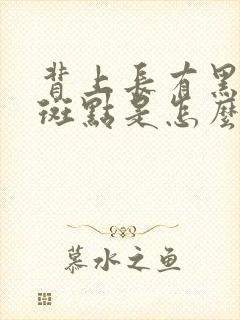 背上長有黑
斑點是怎麼
慕水之鱼